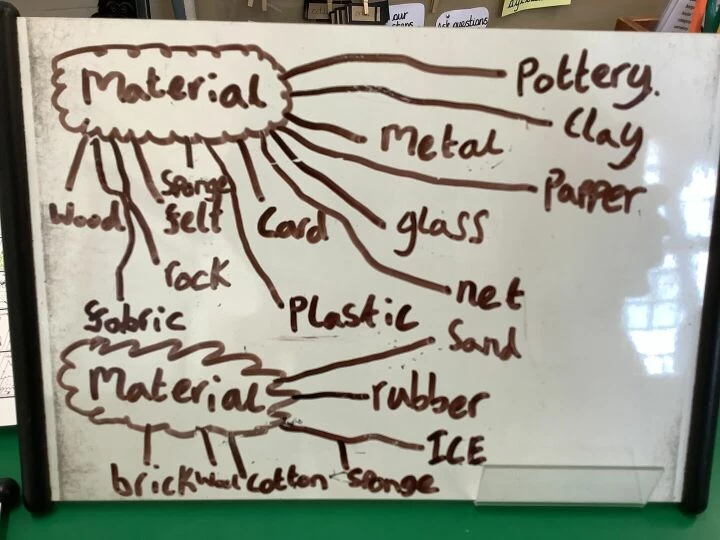 our
Ask questions
Material
Pottery.
Clay
Metal
Papper
Sponge
Wood
felt
Card
glass
rock
net
Plastic
fabric
Sand
Material
rubber
ICE
brick
Wool
cotton
Sponge